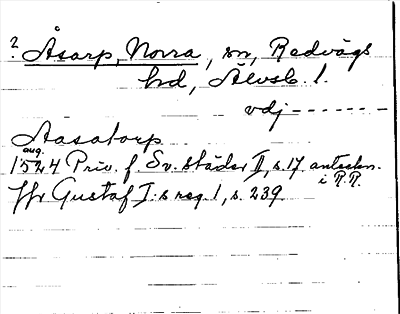 ? Åsarp, Norra, sn, Redvägs
hd, Älvsb. l.
vdj -------
Aasatorp
aug.
1524 Priv. f. Sv. städer II, s. 17 anteckn.
i R.R.
ffr Gustaf I:s reg. 1, s. 239.